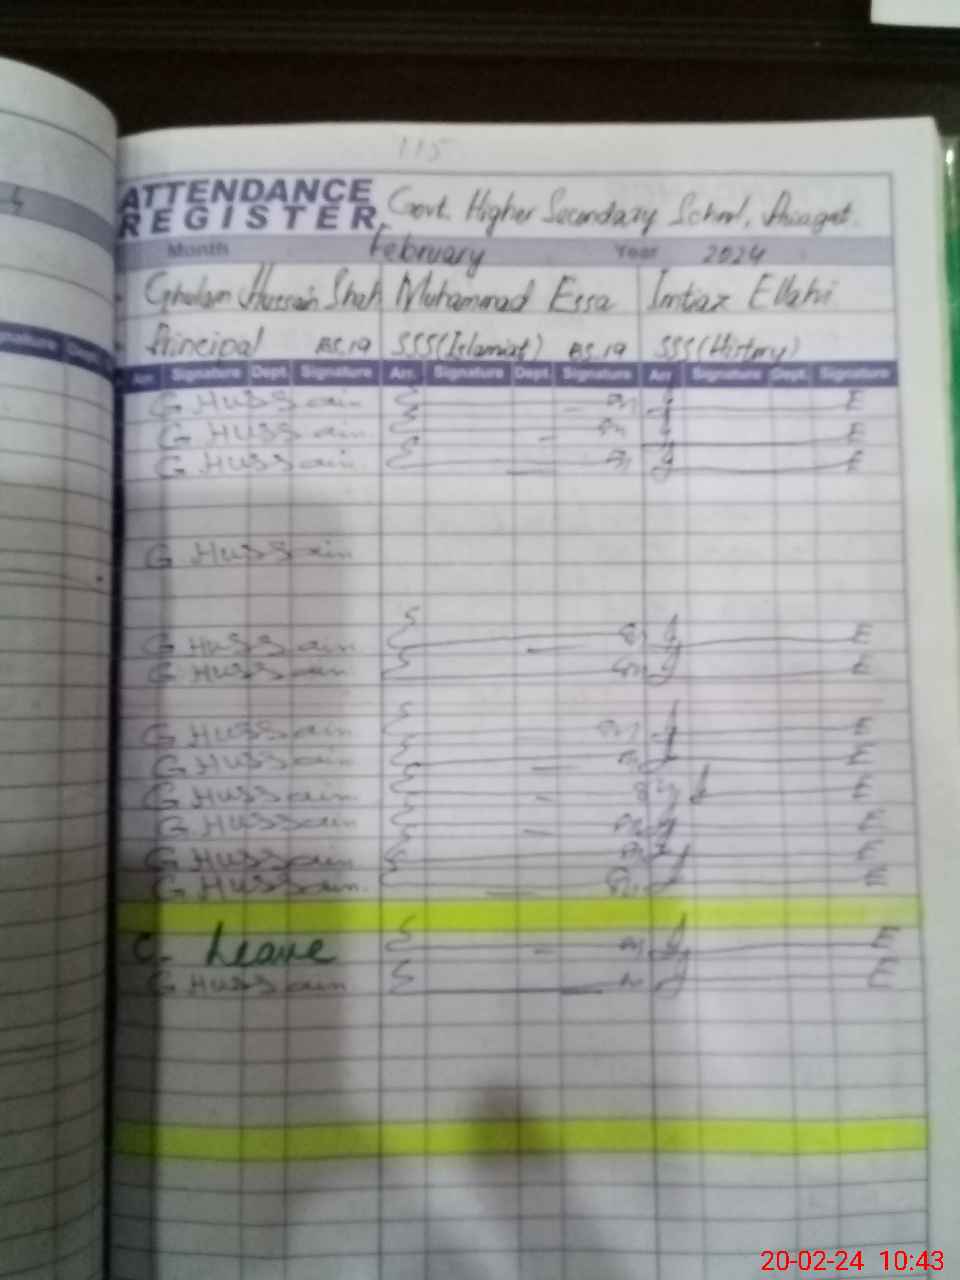 115
ATTENDANCE REGISTER Govt. Higher Secondary School,
Month February Year 2024
Ghulam Hussain Shah Muhammad Essa Imtiaz Ellahi
Principal BS.19 SSS(Islamiat) BS.19 SSS(History)
Arr. Signature Dept. Signature Arr. Signature Dept. Signature Arr. Signature Dept. Signature
G.Hussain E
G.Hussain E
G.Hussain E
G.Hussain
G.Hussain E
G.Hussain E
G.Hussain E
G.Hussain E
G.Hussain E
G.Hussain E
G.Hussain E
G.Hussain E
C. Leave E
G.Hussain E
20-02-24 10:43